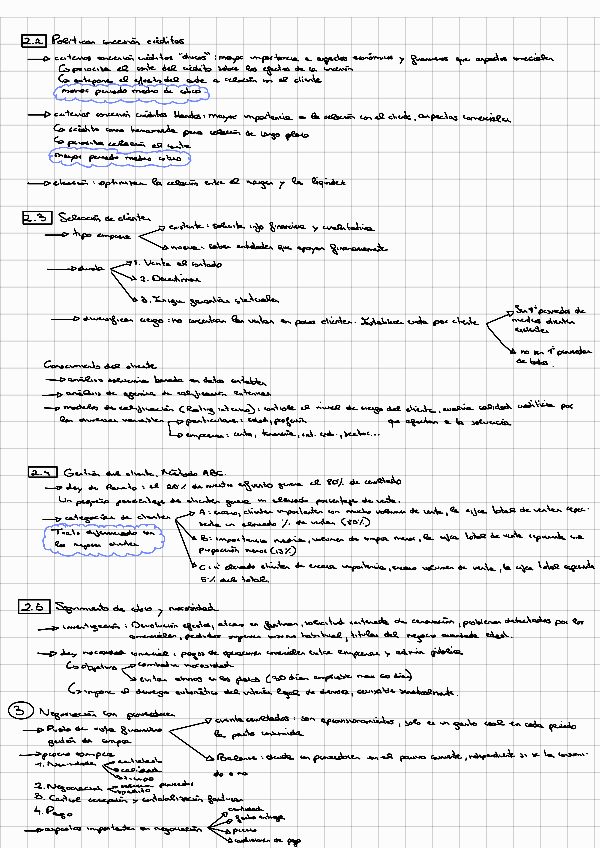 2.2 Políticas concesión créditos
→ criterios concesión créditos "duros": mayor importancia a aspectos económicos y financieros que aspectos comerciales
↳ prioriza el coste del crédito sobre los efectos de la inversión
↳ antepone el efecto del coste a relación con el cliente
menor periodo medio de cobro
→ criterios concesión créditos blandos: mayor importancia a la relación con el cliente, aspectos comerciales
↳ crédito como herramienta para relación de largo plazo
↳ prioriza relación al coste
mayor periodo medio cobro
→ elección: optimizar la relación entre el margen y la liquidez
2.3 Selección de cliente
→ tipo empresa
existente: solicita info financiera y cualitativa
nueva: saber entidades que apoyan financieramente
→ duda
1. Venta al contado
2. Desestimar
3. Exigir garantías
→ diversificar riesgo: no concentrar las ventas en pocos clientes. Establecer cuota por cliente
Ser 1º proveedor de medios clientes
no ser 1º proveedor de todos.
Conocimiento del cliente
→ análisis solvencia basada en datos contables
→ análisis de agencias de calificación externas
→ modelos de calificación (Rating interno): controla el nivel de riesgo del cliente, evalúa calidad crediticia por
las diversas variables → particulares: edad, profesión que afectan a la solvencia
→ empresas:
2.4 Gestión del cliente. Método ABC.
→ Ley de Pareto: el 20% de nuestro esfuerzo genera el 80% de resultado
Un pequeño porcentaje de clientes genera un elevado porcentaje de venta.
→ categorías de clientes
A: clientes importantes con mucho volumen de venta, la cifra total de ventas repre-
senta un elevado % de ventas (80%)
B: importancia media, volumen de compra menor, la cifra total de venta representa una
proporción menor (15%)
C: nº elevado clientes de escasa importancia, escaso volumen de venta, la cifra total representa
5% del total.
Trato diferenciado con los mejores clientes
2.5 Seguimiento de cobro y morosidad
→ investigación: Devolución efectos, atrasos en facturas, solicitud reiterada de renovación, problemas detectados por los
comerciales, pedidos superiores a lo normal habitual, titular del negocio avanzada edad.
→ Ley morosidad comercial: pagos de operaciones comerciales entre empresas y admin pública
↳ objetivo
combatir morosidad
evitar abusos en los plazos (30 días ampliable max 60 días)
↳ impone el devengo automático del interés legal de demora,
3 Negociación con proveedores
→ Punto de vista financiero
gestión de compra
cuenta resultados: son aprovisionamientos, solo es un gasto real en cada periodo
la parte consumida
Balance: deuda con proveedores en el pasivo corriente, independiente si se ha consumi-
do o no
→ proceso compra
1. Necesidades
cantidad
calidad
tiempo
2. Negociación
3. Control recepción y contabilización factura
4. Pago
→ aspectos importantes en negociación
cantidad
fecha entrega
precio
condiciones de pago